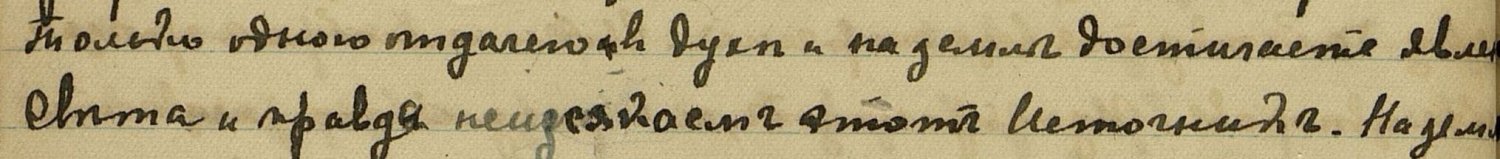 только одного отдачею въ духъ и на земли достигаете явле
Свѣта и правда неизсякаемъ этотъ Источникъ. На земл